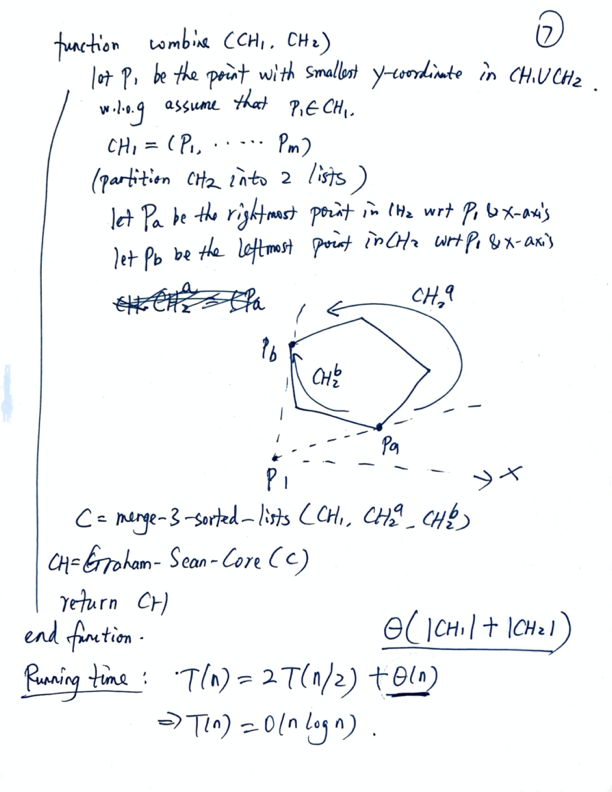 ⑦
function combine (CH₁, CH₂)
let P₁ be the point with smallest y-coordinate in CH₁∪CH₂.
w.l.o.g assume that P₁∈CH₁.
CH₁ = (P₁, ...... Pm)
(partition CH₂ into 2 lists)
let Pa be the rightmost point in CH₂ wrt P₁ & x-axis
let Pb be the leftmost point in CH₂ wrt P₁ & x-axis
CH₂ᵃ
Pb
CH₂ᵇ
Pa
P₁
x
C = merge-3-sorted-lists (CH₁, CH₂ᵃ, CH₂ᵇ)
CH = Graham-Scan-Core (C)
return CH
end function.
Θ(|CH₁| + |CH₂|)
Running time: T(n) = 2T(n/2) + Θ(n)
⇒ T(n) = O(n log n).